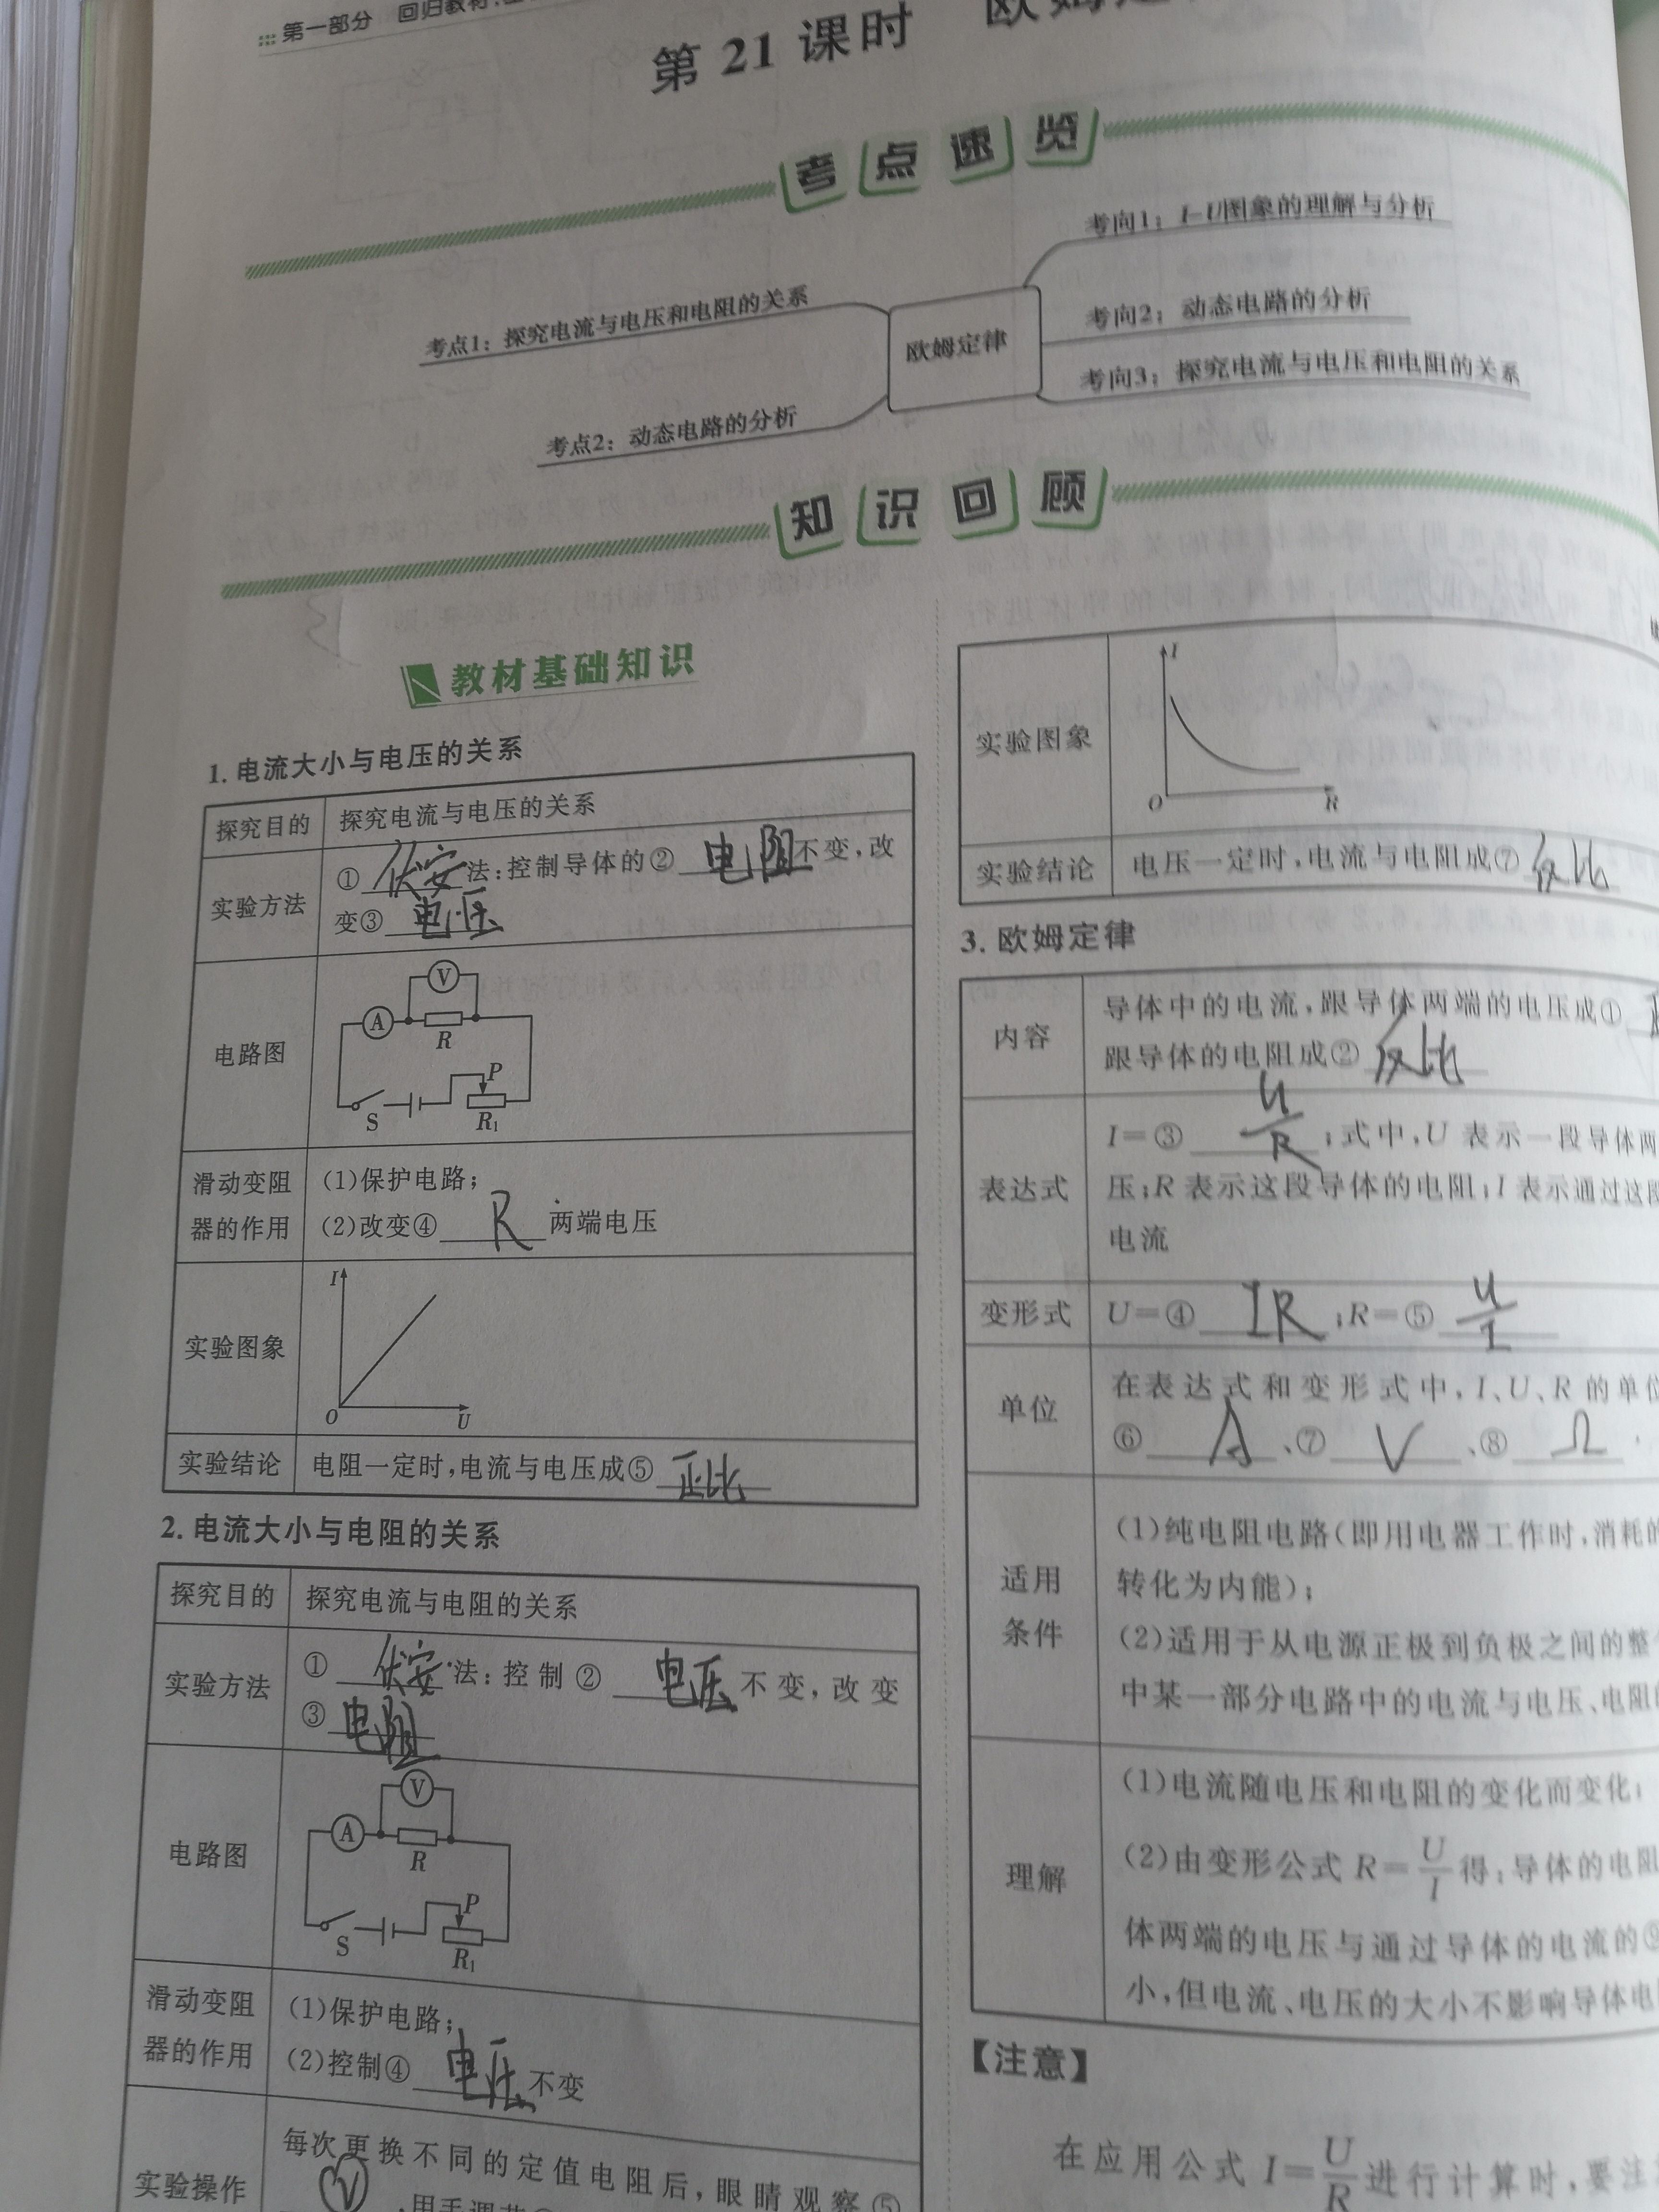 第一部分 回归教材
第 21 课时 欧姆定
考点速览
考点1：探究电流与电压和电阻的关系
考点2：动态电路的分析
欧姆定律
考向1：I-U图象的理解与分析
考向2：动态电路的分析
考向3：探究电流与电压和电阻的关系
知识回顾
教材基础知识
1. 电流大小与电压的关系
探究目的 探究电流与电压的关系
实验方法
①伏安法：控制导体的②电阻不变，改
变③电压
电路图
V
A
R
P
S
R₁
滑动变阻
器的作用
(1)保护电路；
(2)改变④R两端电压
实验图象
I
O
U
实验结论 电阻一定时，电流与电压成⑤正比
2. 电流大小与电阻的关系
探究目的 探究电流与电阻的关系
实验方法
①伏安法：控制②电压不变，改变
③电阻
电路图
V
A
R
P
S
R₁
滑动变阻
器的作用
(1)保护电路；
(2)控制④电压不变
实验操作
每次更换不同的定值电阻后，眼睛观察⑤
V，用手调节
实验图象
I
O
R
实验结论 电压一定时，电流与电阻成⑦反比
3. 欧姆定律
内容
导体中的电流，跟导体两端的电压成①
跟导体的电阻成②反比
表达式
I=③U/R；式中，U 表示一段导体两
压；R 表示这段导体的电阻；I 表示通过这段
电流
变形式 U=④IR；R=⑤U/I
单位
在表达式和变形式中，I、U、R 的单位
⑥A、⑦V、⑧Ω
适用
条件
(1)纯电阻电路(即用电器工作时，消耗的
转化为内能)；
(2)适用于从电源正极到负极之间的整
中某一部分电路中的电流与电压、电阻的
理解
(1)电流随电压和电阻的变化而变化；
(2)由变形公式 R=U/I 得：导体的电阻
体两端的电压与通过导体的电流的⑨
小，但电流、电压的大小不影响导体电
【注意】
在应用公式 I=U/R 进行计算时，要注